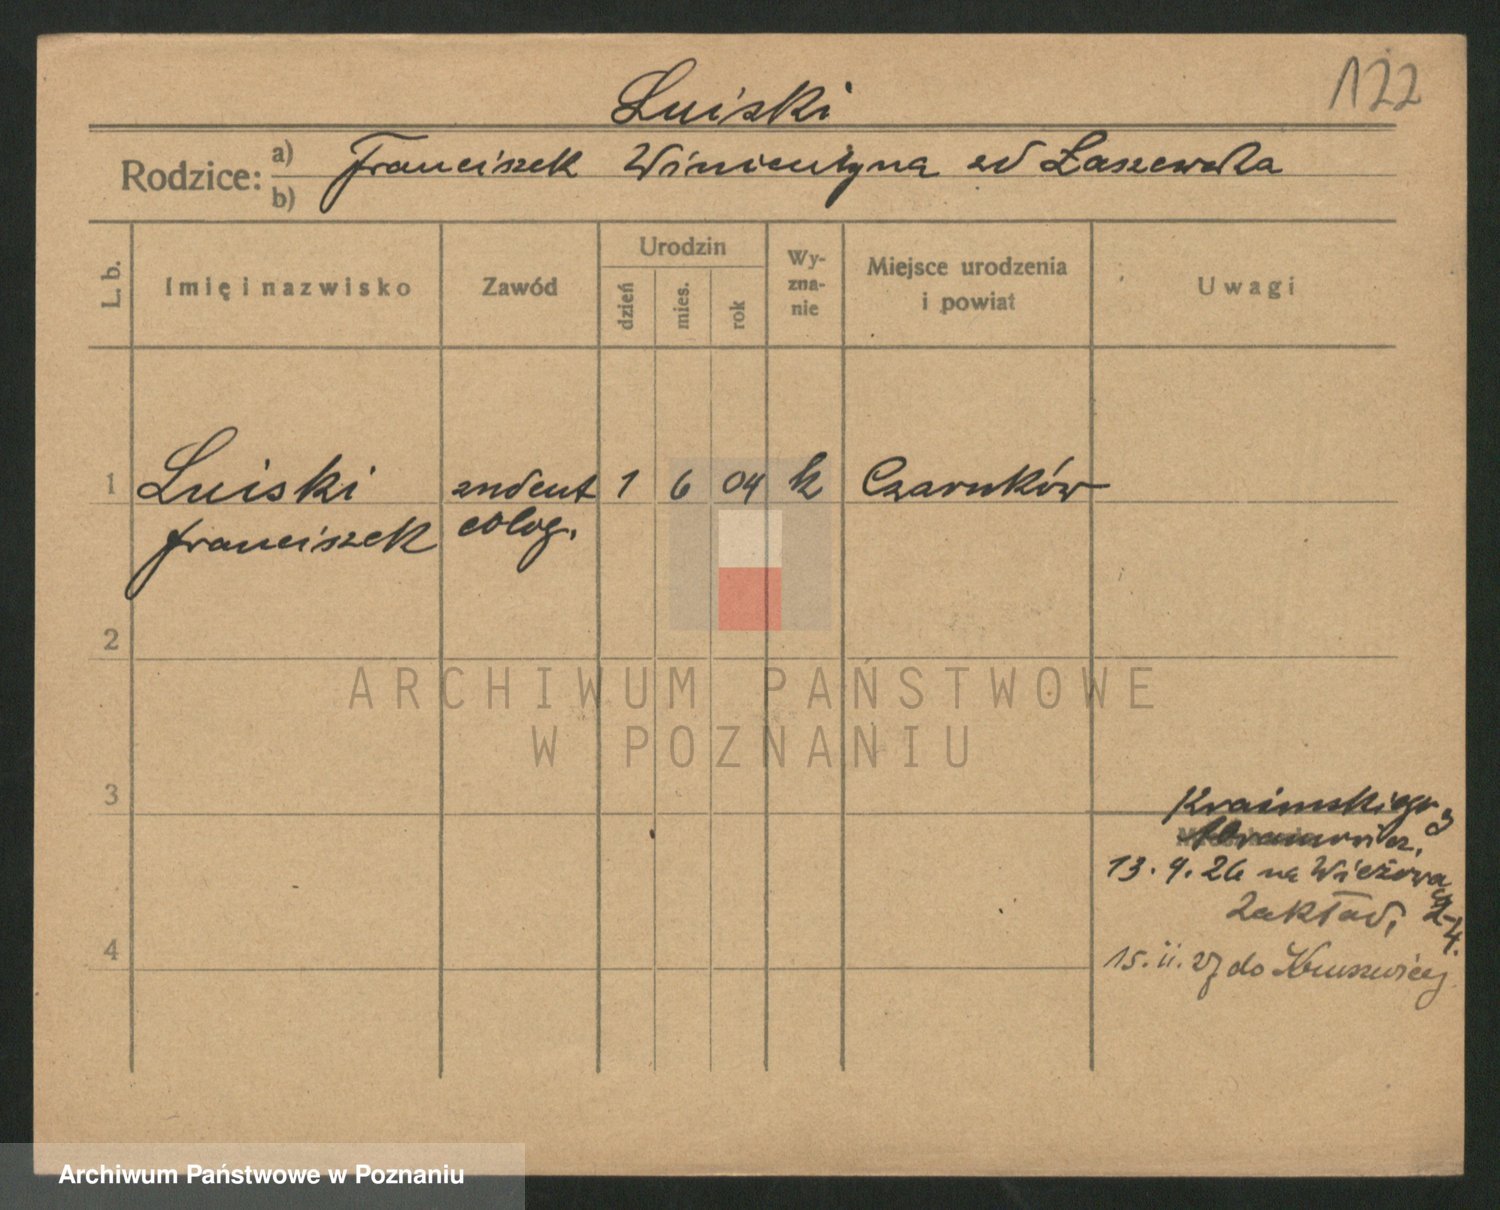 122
Luiski
Rodzice: a) Franciszek Winientyna zd Łaszewska
b)
L. b. Imię i nazwisko Zawód Urodzin dzień mies. rok Wyznanie Miejsce urodzenia i powiat Uwagi
1 Luiski student 1 6 04 k Czarnków
Franciszek eolog.
2
ARCHIWUM PAŃSTWOWE
W POZNANIU
3
Kraińskiego 3
13. 9. 26 na Wieżowa
Zakład, 2-4.
4
15. II. 27 do Kruszwicy
Archiwum Państwowe w Poznaniu